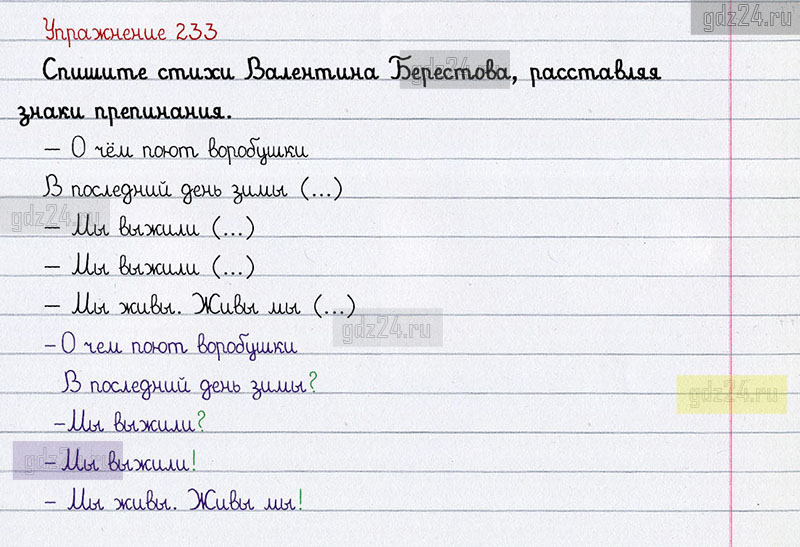 gdz24.ru
Упражнение 233
Спишите стихи Валентина Берестова, расставляя
gdz24.ru
знаки препинания.
— О чём поют воробушки
В последний день зимы (...)
gdz24.ru
— Мы выжили (...)
— Мы выжили (...)
— Мы живы. Живы мы (...)
gdz24.ru
-О чем поют воробушки
В последний день зимы?
gdz24.ru
-Мы выжили?
gdz24.ru
- Мы выжили!
- Мы живы. Живы мы!